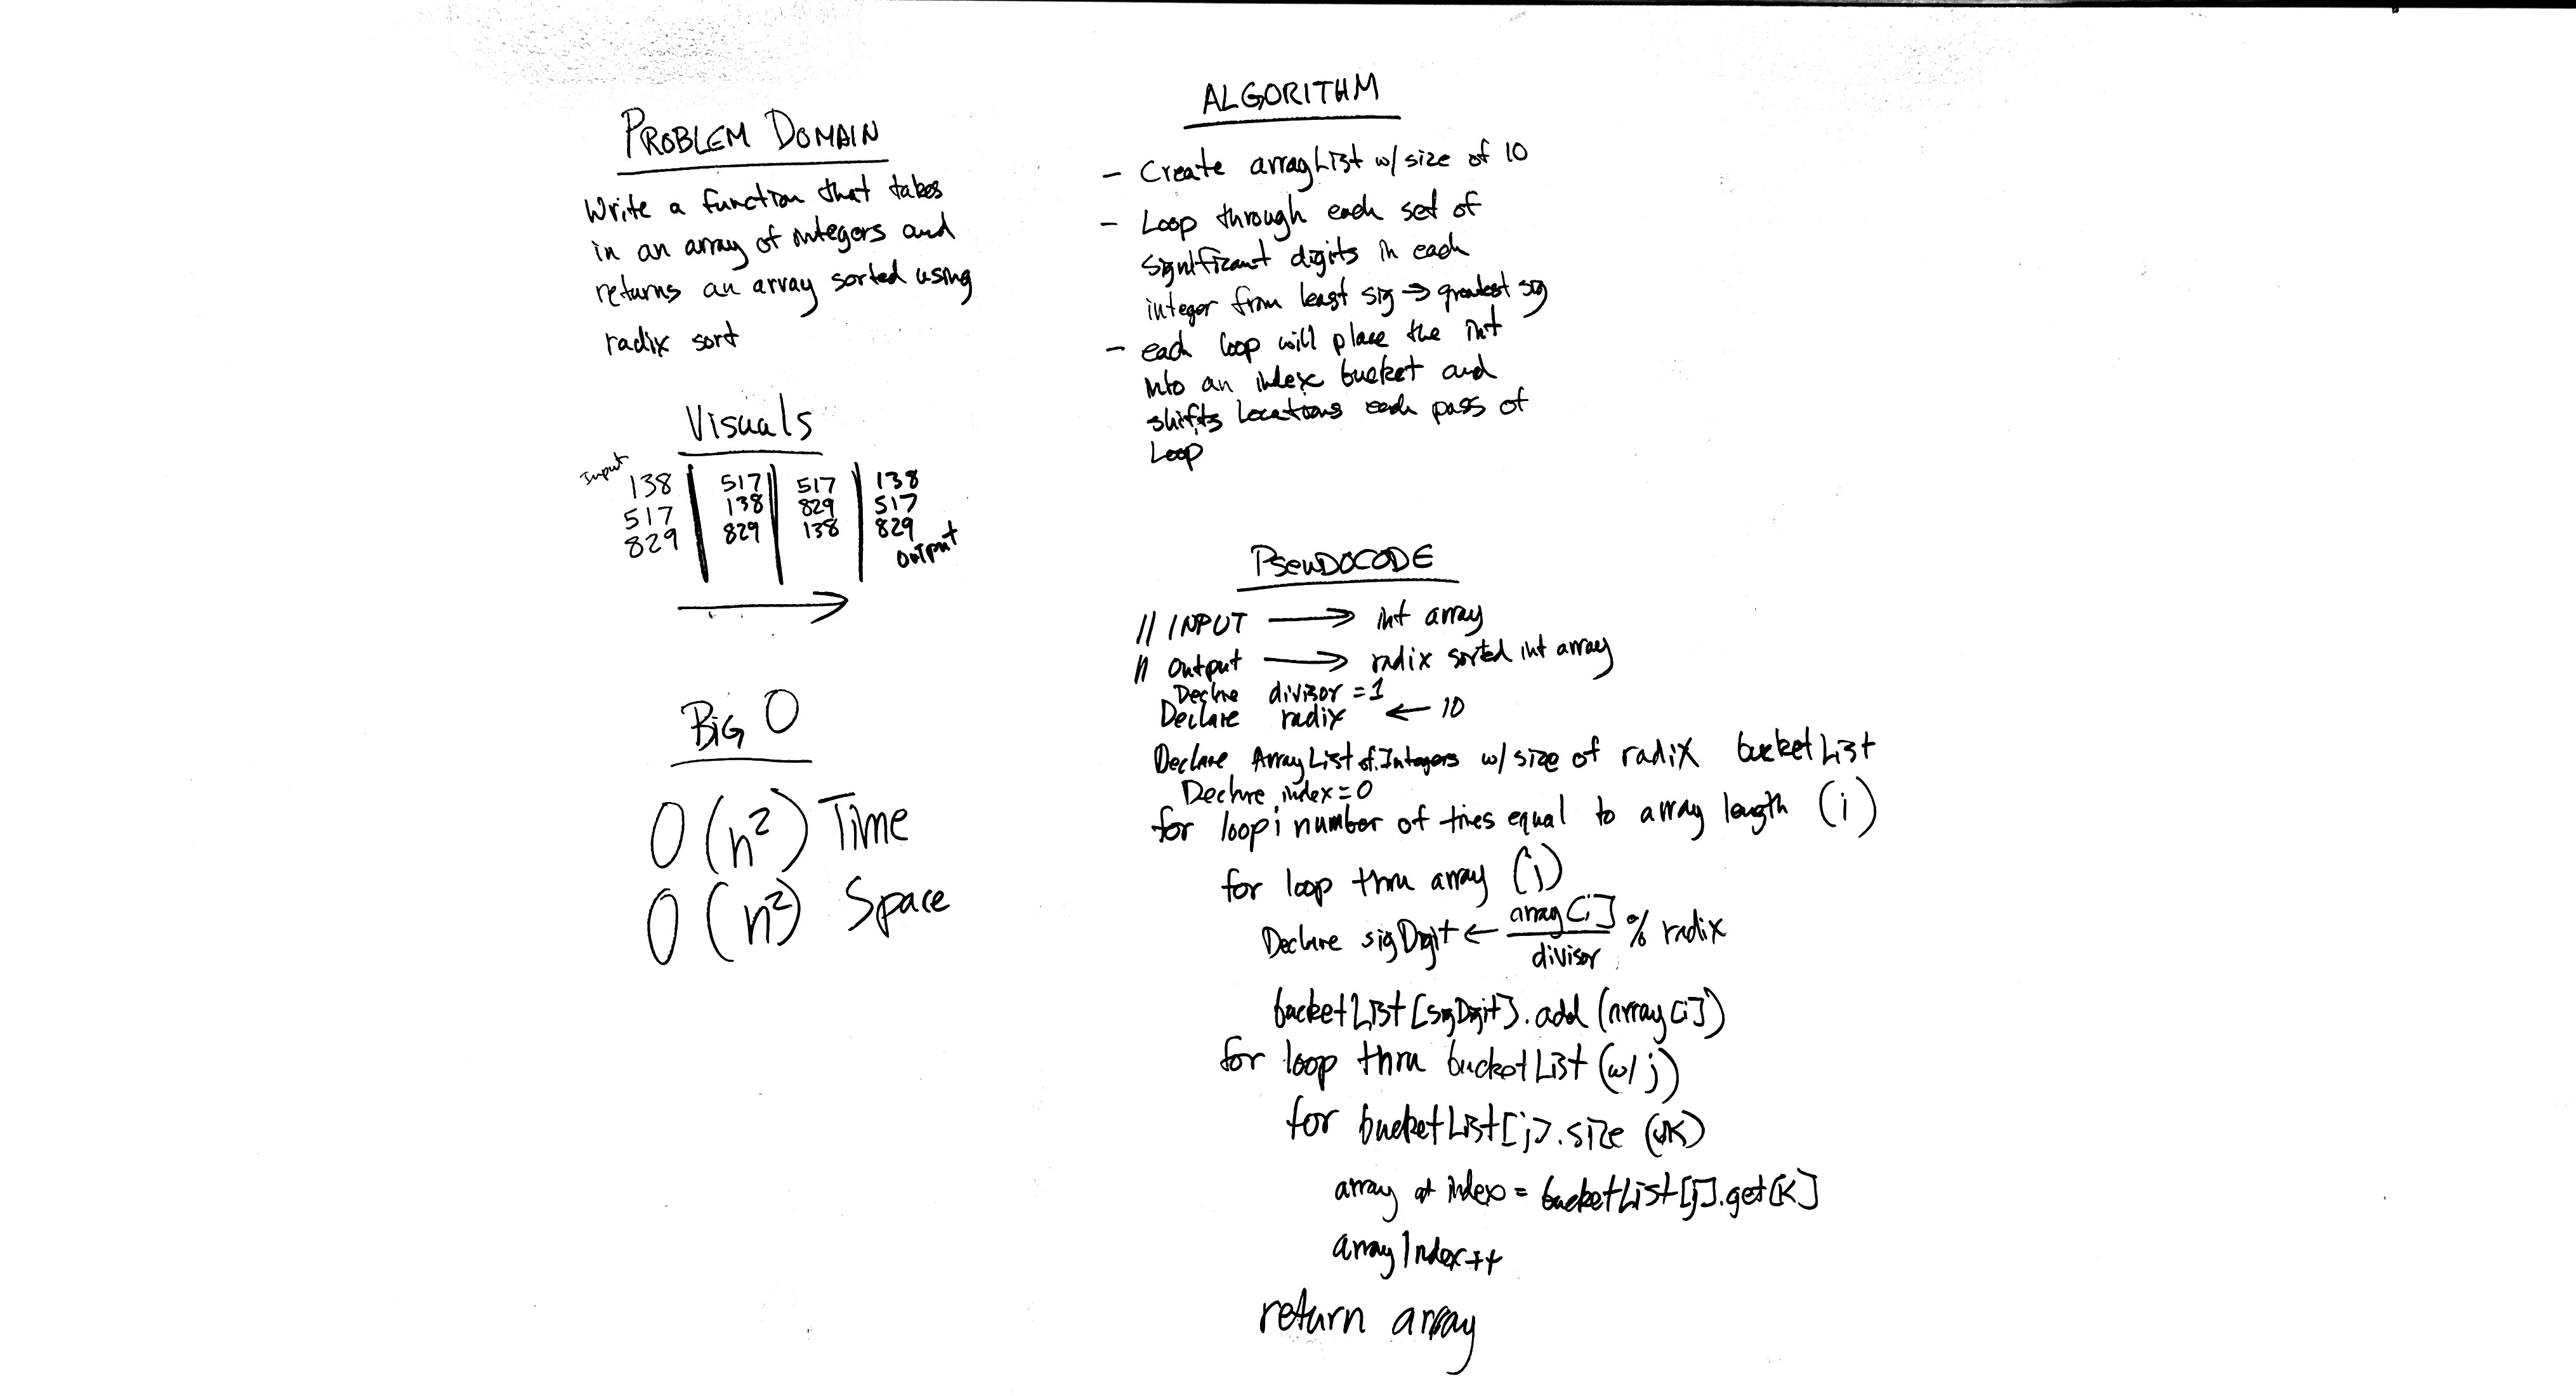 PROBLEM DOMAIN
Write a function that takes
in an array of integers and
returns an array sorted using
radix sort
Visuals
Input
138 517 517 138
517 138 829 517
829 829 138 829
OUTPUT
BIG O
O(n²) Time
O(n²) Space
ALGORITHM
- Create arrayList w/ size of 10
- Loop through each set of
significant digits in each
integer from least sig → greatest sig
- each loop will place the int
into an index bucket and
shifts locations each pass of
Loop
PSEUDOCODE
// INPUT → int array
// Output → radix sorted int array
Declare divisor = 1
Declare radix ← 10
Declare ArrayList of Integers w/ size of radix bucketList
Declare index = 0
for loop i number of times equal to array length (i)
for loop thru array (j)
Declare sigDigit ← array[i] / divisor % radix
bucketList[sigDigit].add(array[i])
for loop thru bucketList (w/ j)
for bucketList[j].size (w/K)
array at index = bucketList[j].get[K]
arrayIndex++
return array